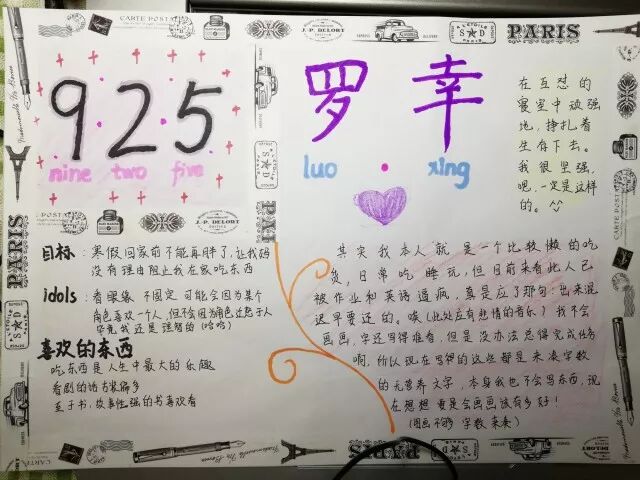 925
nine two five
罗 幸
luo · xing
在互怼的
寝室中顽强
地，挣扎着
生存下去。
我很坚强，
嗯，一定是这样
的。^^
目标：寒假回家前不能再胖了，让我妈
没有理由阻止我在家吃东西
idols：看眼缘 不固定 可能会因为某个
角色喜欢一个人，但不会因为角色迁怒于人
毕竟我还是理智的（哈哈）
喜欢的东西
吃东西是人生中最大的乐趣
看剧的话古装偏多
至于书，故事性强的书喜欢看
其实我本人就是一个比较懒的吃
货，日常吃睡玩，但目前来看此人已
被作业和英语逼疯，真是应了那句 出来混
迟早要还的。唉（此处应有悲情的音乐）我不会
画画，字还写得难看，但是没办法总得完成任务
啊，所以现在写的这些都是来凑字数
的无营养文字，本身我也不会写东西，现
在想想要是会画画该有多好！
（图画不够 字数来凑）
PARIS
CARTE POSTALE
J.P. DELORT
S D
PARIS
PARIS
PARIS